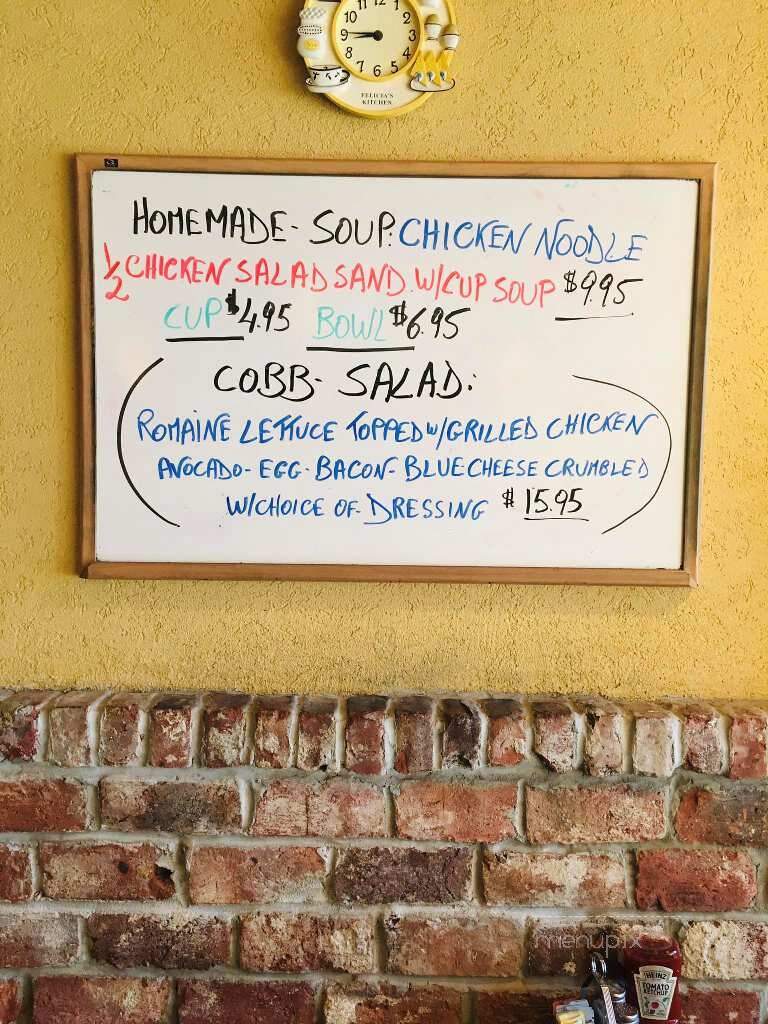 12 11 1 2 3 4 5 6 7 8 9 10
FELICIA'S
KITCHEN
HOMEMADE- SOUP: CHICKEN NOODLE
1/2 CHICKEN SALAD SAND. W/CUP SOUP $9.95
CUP $4.95 BOWL $6.95
COBB- SALAD:
ROMAINE LETTUCE TOPPED W/GRILLED CHICKEN
AVOCADO- EGG- BACON- BLUE CHEESE CRUMBLED
W/CHOICE OF DRESSING $15.95
menupix
HEINZ
TOMATO
KETCHUP